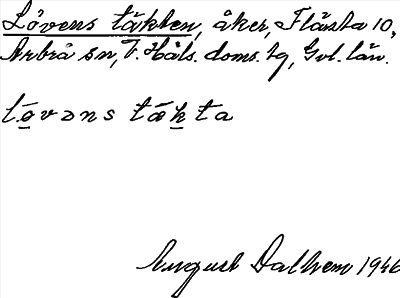 Lövens täkten, åker, Flästa 10,
Arbrå sn, V. Häls. doms. tg, Gvl. län.
lövəns täkta
August Dalhem 1946